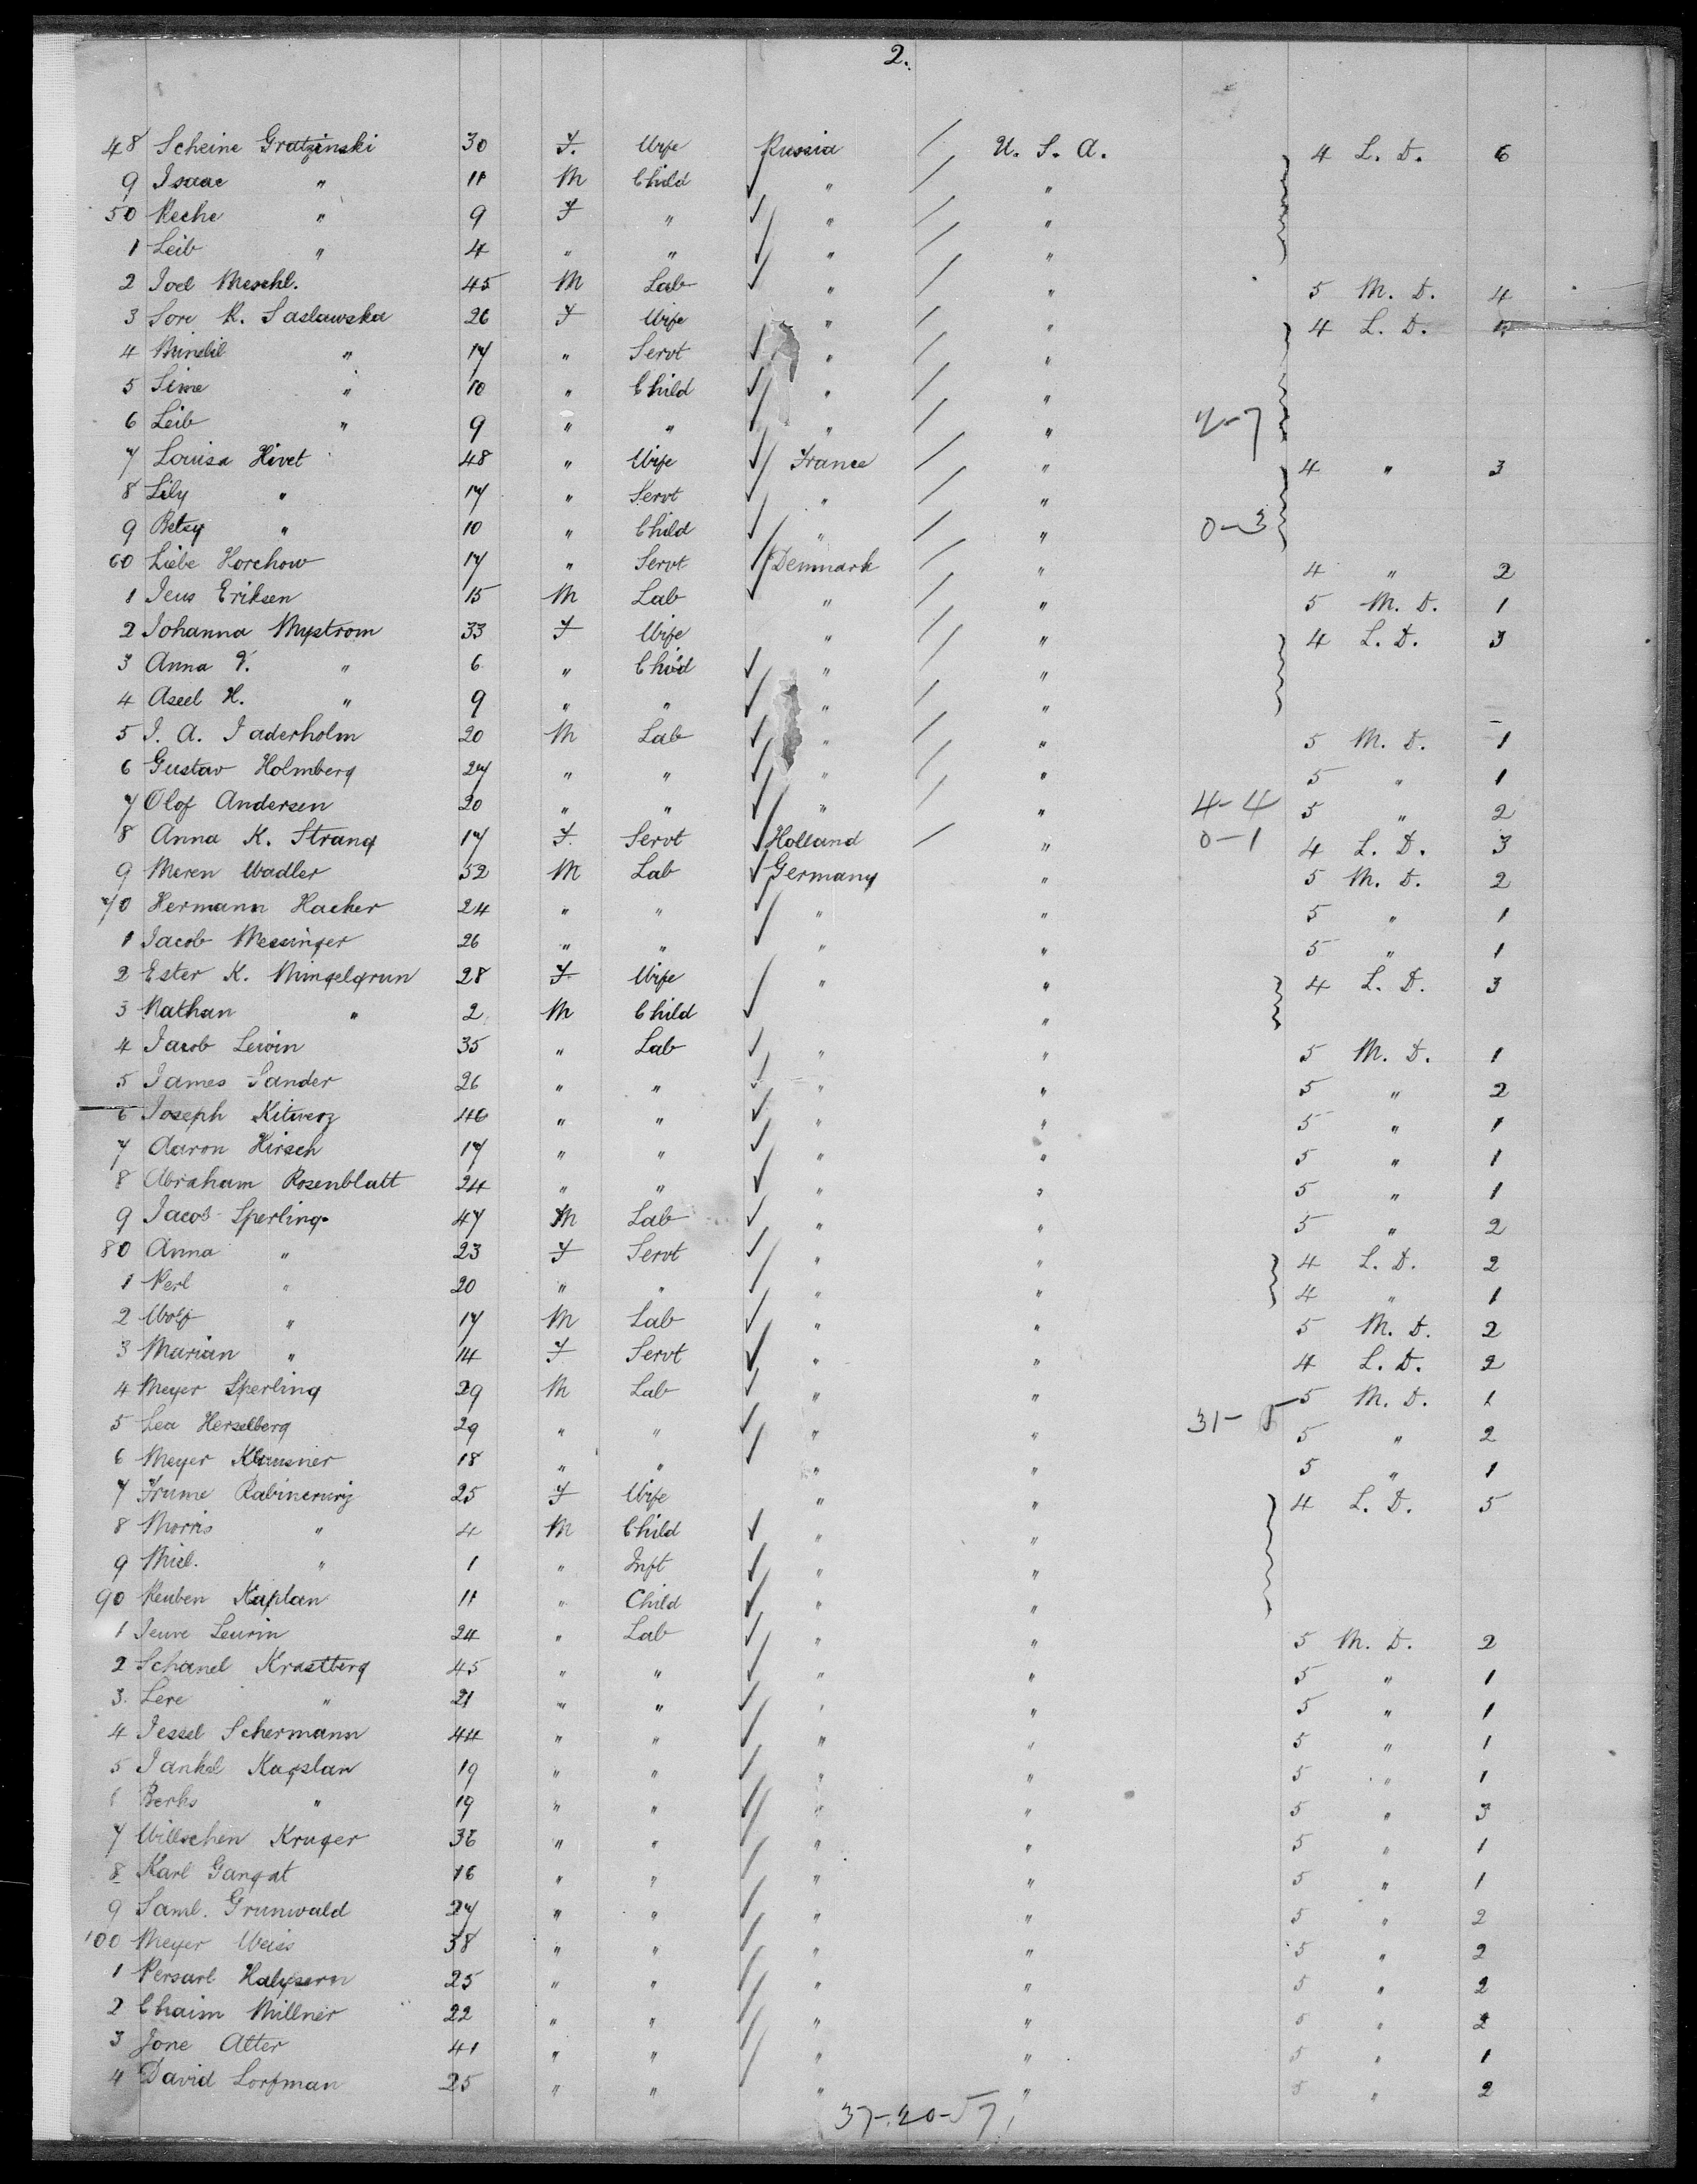 2.
48 Scheine Gratzinski 30 F. Wife Russia / U. S. A. 4 L. D. 6
9 Isaac " 11 M Child " / "
50 Reche " 9 F " " / "
1 Leib " 4 " " " / "
2 Joel Meschl. 45 M Lab " / " 5 M. D. 4
3 Sore R. Saslawska 26 F Wife " / " 4 L. D. 4
4 Brindel " 17 " Servt " / "
5 Sime " 10 " Child " / "
6 Leib " 9 " " " / " 2-7
7 Louisa Hivet 48 " Wife France / " 4 " 3
8 Lily " 17 " Servt " / "
9 Betsy " 10 " Child " / " 0-3
60 Liebe Horchow 17 " Servt Denmark / " 4 " 2
1 Jens Eriksen 15 M Lab " / " 5 M. D. 1
2 Johanna Nystrom 33 F Wife " / " 4 L. D. 3
3 Anna V. " 6 " Child " / "
4 Aseel H. " 9 " " " / "
5 J. A. Jaderholm 20 M Lab " / " 5 M. D. 1
6 Gustav Holmberg 27 " " " / " 5 " 1
7 Olof Andersen 20 " " " / " 4-4 5 " 2
8 Anna K. Strang 17 F. Servt Holland / " 0-1 4 L. D. 3
9 Meren Wadler 52 M Lab Germany " 5 M. D. 2
70 Hermann Hacker 24 " " " " 5 " 1
1 Jacob Messinger 26 " " " " 5 " 1
2 Ester K. Mingelgrun 28 F Wife " " 4 L. D. 3
3 Nathan " 2 M Child "
4 Jacob Lewin 35 " Lab " " 5 M. D. 1
5 James Sander 26 " " " " 5 " 2
6 Joseph 40 " " " " 5 " 1
7 Aaron Hirsch 17 " " " " 5 " 1
8 Abraham Rosenblatt 24 " " " " 5 " 1
9 Jacob Sperling 47 M Lab " " 5 " 2
80 Anna " 23 F Servt " " 4 L. D. 2
1 Perl " 20 " " " " 4 " 1
2 Wolf " 17 M Lab " " 5 M. D. 2
3 Marian " 14 F Servt " " 4 L. D. 2
4 Meyer Sperling 29 M Lab " " 5 M. D. 1
5 Lea Herselberg 29 " " " " 31-5 5 " 2
6 Meyer Klausner 18 " " " " 5 " 1
7 Frume 25 F Wife " " 4 L. D. 5
8 Morris " 4 M Child " "
9 " 1 " Inft " "
90 Reuben Kaplan 11 " Child " "
1 Leurin 24 " Lab " " 5 M. D. 2
2 Schanel Krastberg 45 " " " " 5 " 1
3. Lere " 21 " " " " 5 " 1
4 Jessel Schermann 44 " " " " 5 " 1
5 Jankel 19 " " " " 5 " 1
Berks " 19 " " " " 5 " 3
7 Kruger 36 " " " " 5 " 1
8 Karl Gangat 16 " " " " 5 " 1
9 Saml. Grunwald 27 " " " " 5 " 2
100 Meyer Weiss 38 " " " " 5 " 2
1 25 " " " " 5 " 2
2 Chaim Millner 22 " " " " 5 " 2
3 Jone Alter 41 " " " " 5 " 1
4 David Lorfman 25 " " " " 5 " 2
37-20-57